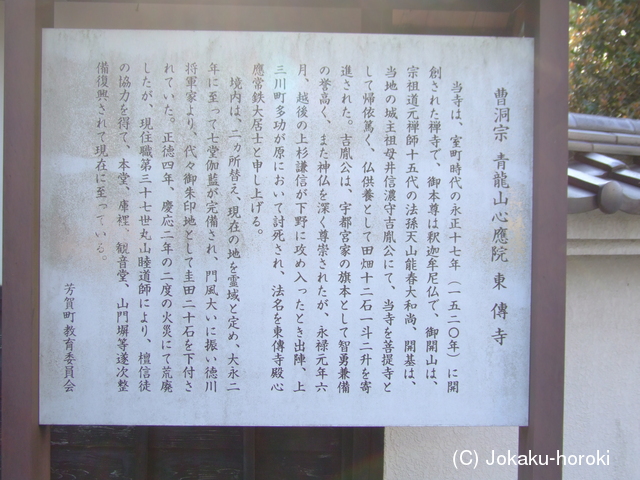 曹洞宗 青龍山心應院 東傳寺
当寺は、室町時代の永正十七年(一五二〇年)に開
創された禅寺で、御本尊は釈迦牟尼仏で、御開山は、
宗祖道元禅師十五代の法孫天山能春大和尚、開基は、
当地の城主祖母井信濃守吉胤公にて、当寺を菩提寺と
して帰依篤く、仏供養として田畑十二石一斗二升を寄
進された。吉胤公は、宇都宮家の旗本として智勇兼備
の誉高く、また神仏を深く尊崇されたが、永禄元年六
月、越後の上杉謙信が下野に攻め入ったとき出陣、上
三川町多功が原において討死され、法名を東傳寺殿心
應常鉄大居士と申し上げる。
境内は、二ヵ所替え、現在の地を霊域と定め、大永二
年に至って七堂伽藍が完備され、門風大いに振い徳川
将軍家より、代々御朱印地として圭田二十石を下付さ
れていた。正徳四年、慶応二年の二度の火災にて荒廃
したが、現住職第三十七世丸山睦道師により、檀信徒
の協力を得て、本堂、庫裡、観音堂、山門塀等逐次整
備復興されて現在に至っている。
芳賀町教育委員会
(C) Jokaku-horoki